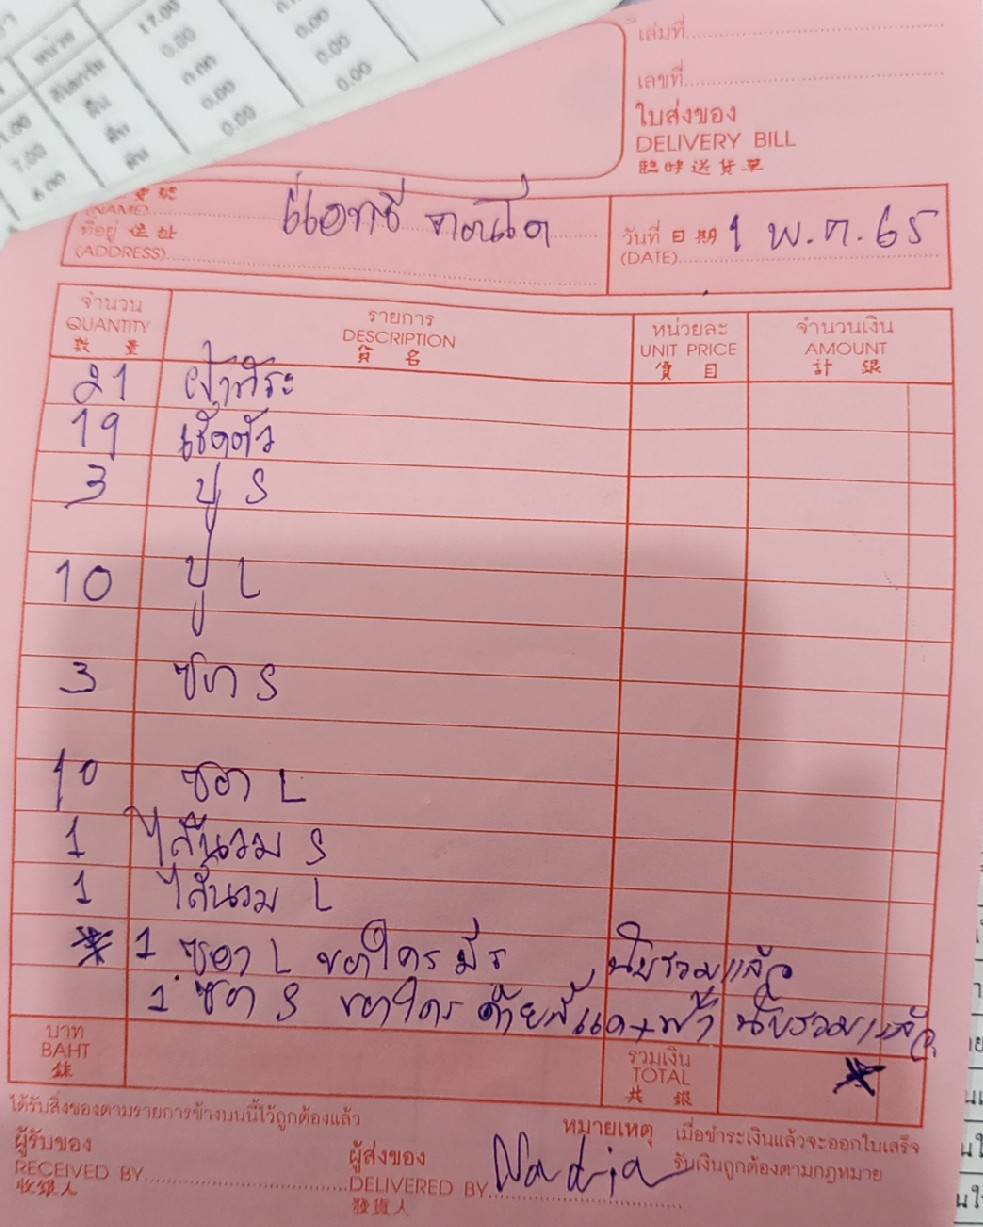 เล่มที่
เลขที่
ใบส่งของ
DELIVERY BILL
臨時送貨單
(NAME)
ที่อยู่ 住址
(ADDRESS)
วันที่ 日期 1 พ.ค. 65
(DATE)
จำนวน
QUANTITY
數量
รายการ
DESCRIPTION
貨名
หน่วยละ
UNIT PRICE
價目
จำนวนเงิน
AMOUNT
計銀
21
19 เช็ดตัว
3 ปู S
10 ปู L
3 S
10 ซอง L
1 ไส้นวม S
1 ไส้นวม L
1 ซอง L นับรวมแล้ว
1 S นับรวมแล้ว
บาท
BAHT
銖
รวมเงิน
TOTAL
共銀
ได้รับสิ่งของตามรายการข้างบนนี้ไว้ถูกต้องแล้ว
หมายเหตุ เมื่อชำระเงินแล้วจะออกใบเสร็จ
รับเงินถูกต้องตามกฎหมาย
ผู้รับของ
RECEIVED BY
收貨人
ผู้ส่งของ
DELIVERED BY Nadia
發貨人